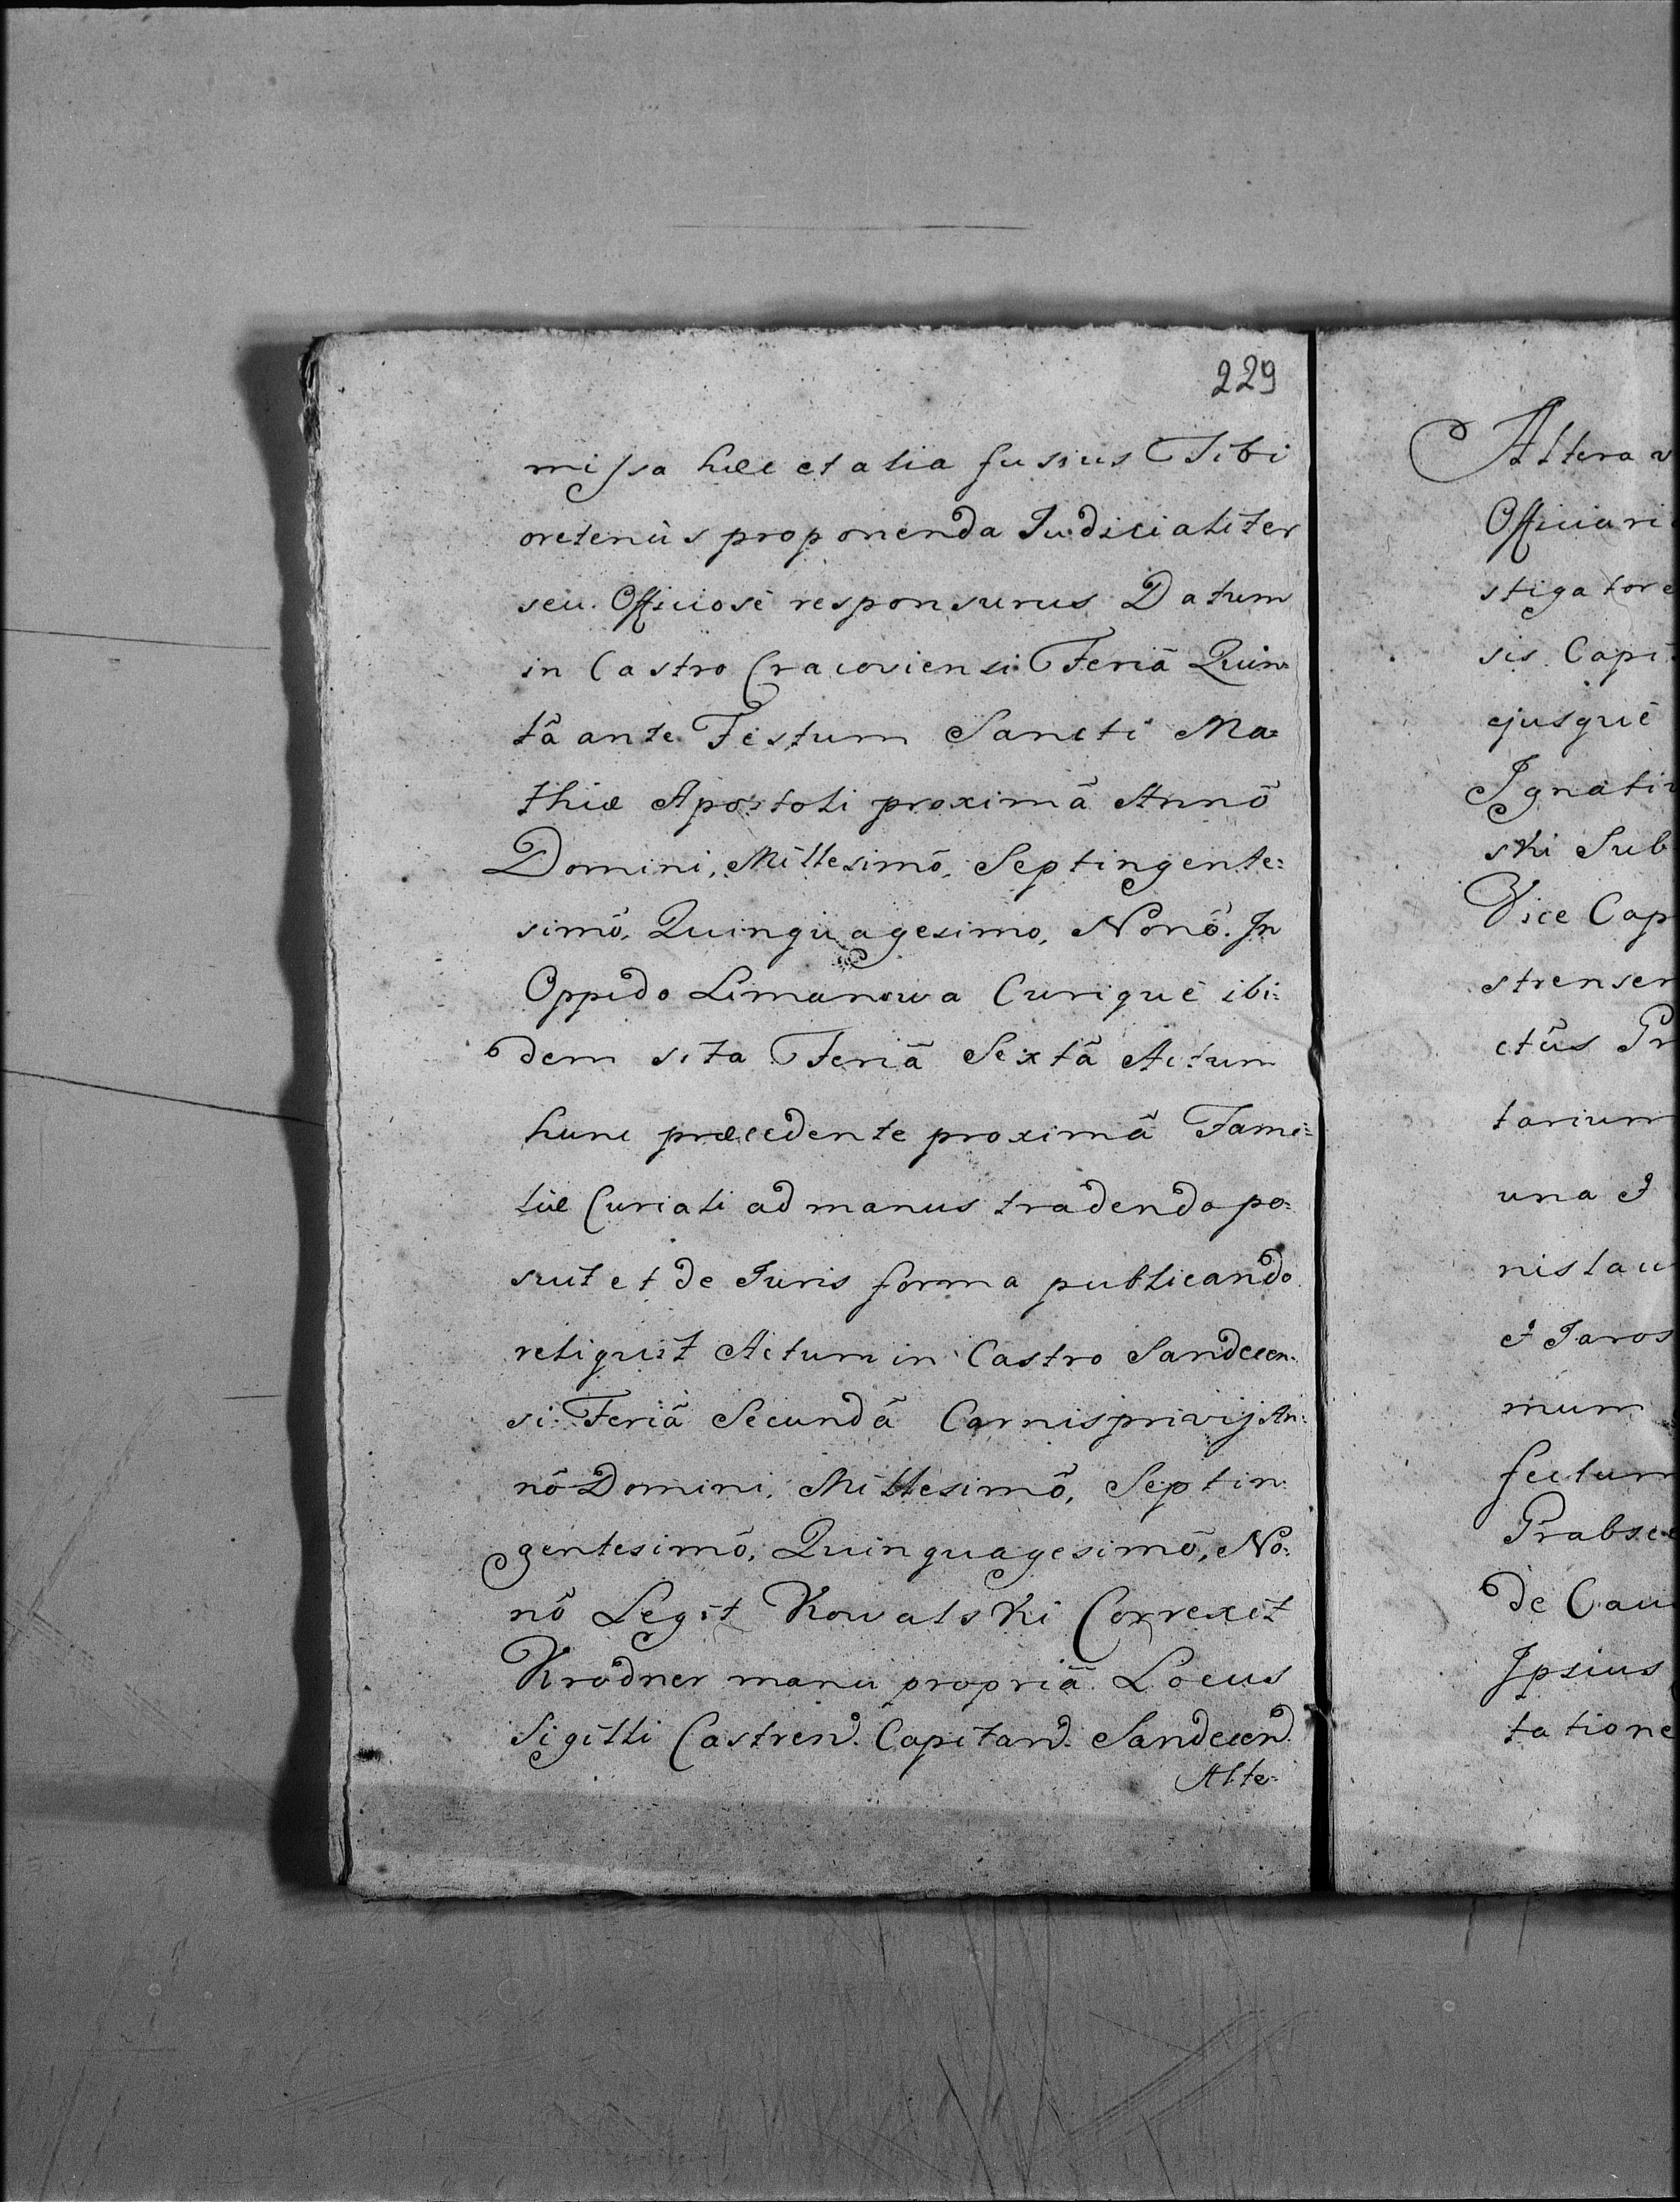 229
missa hæc et alia fusius Tibi
oretenùs proponenda Judicialiter
seu Officiosè responsurus Datum
in Castro Cracoviensi Feriâ Quin=
tâ ante Festum Sancti Ma=
thiæ Apostoli proximâ Annô
Domini, Millesimô, Septingente=
simô, Quinquagesimo, Nonô. In
Oppido Limanowa Curiquè ibi=
dem sita Feriâ Sextâ Actum
hunc præcedente proximâ Fami=
liæ Curiali ad manus tradendo po=
suit et de Juris forma publicando
reliquit Actum in Castro Sandecen=
si Feriâ Secundâ Carnisprivij An=
nô Domini, Millesimô, Septin=
gentesimô, Quinquagesimô, No=
nô Legit Kowalski Correxit
Krodner manu propriâ. Locus
Sigilli Castren. Capitan. Sandecen.
Alte=
Altera v
Officiari
stigatore
sis Capi
ejusquè
Ignati
ski Sub
Vice Cap
strensen
ctûs Pr
tarium
una I
nislau
I Jaros
mum
fectum
Grabsc
de Cau
Ipsius
tatione